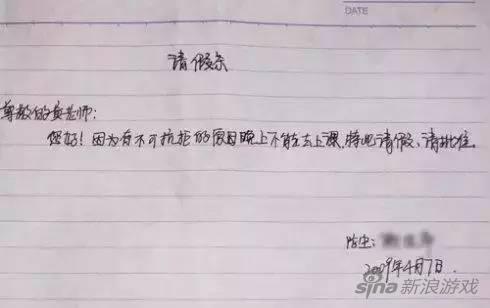 DATE
请假条
尊敬的老师:
您好!因为有不可抗拒的原因晚上不能去上课,特此请假,请批准。
学生:
2009年4月7日.
sina新浪游戏